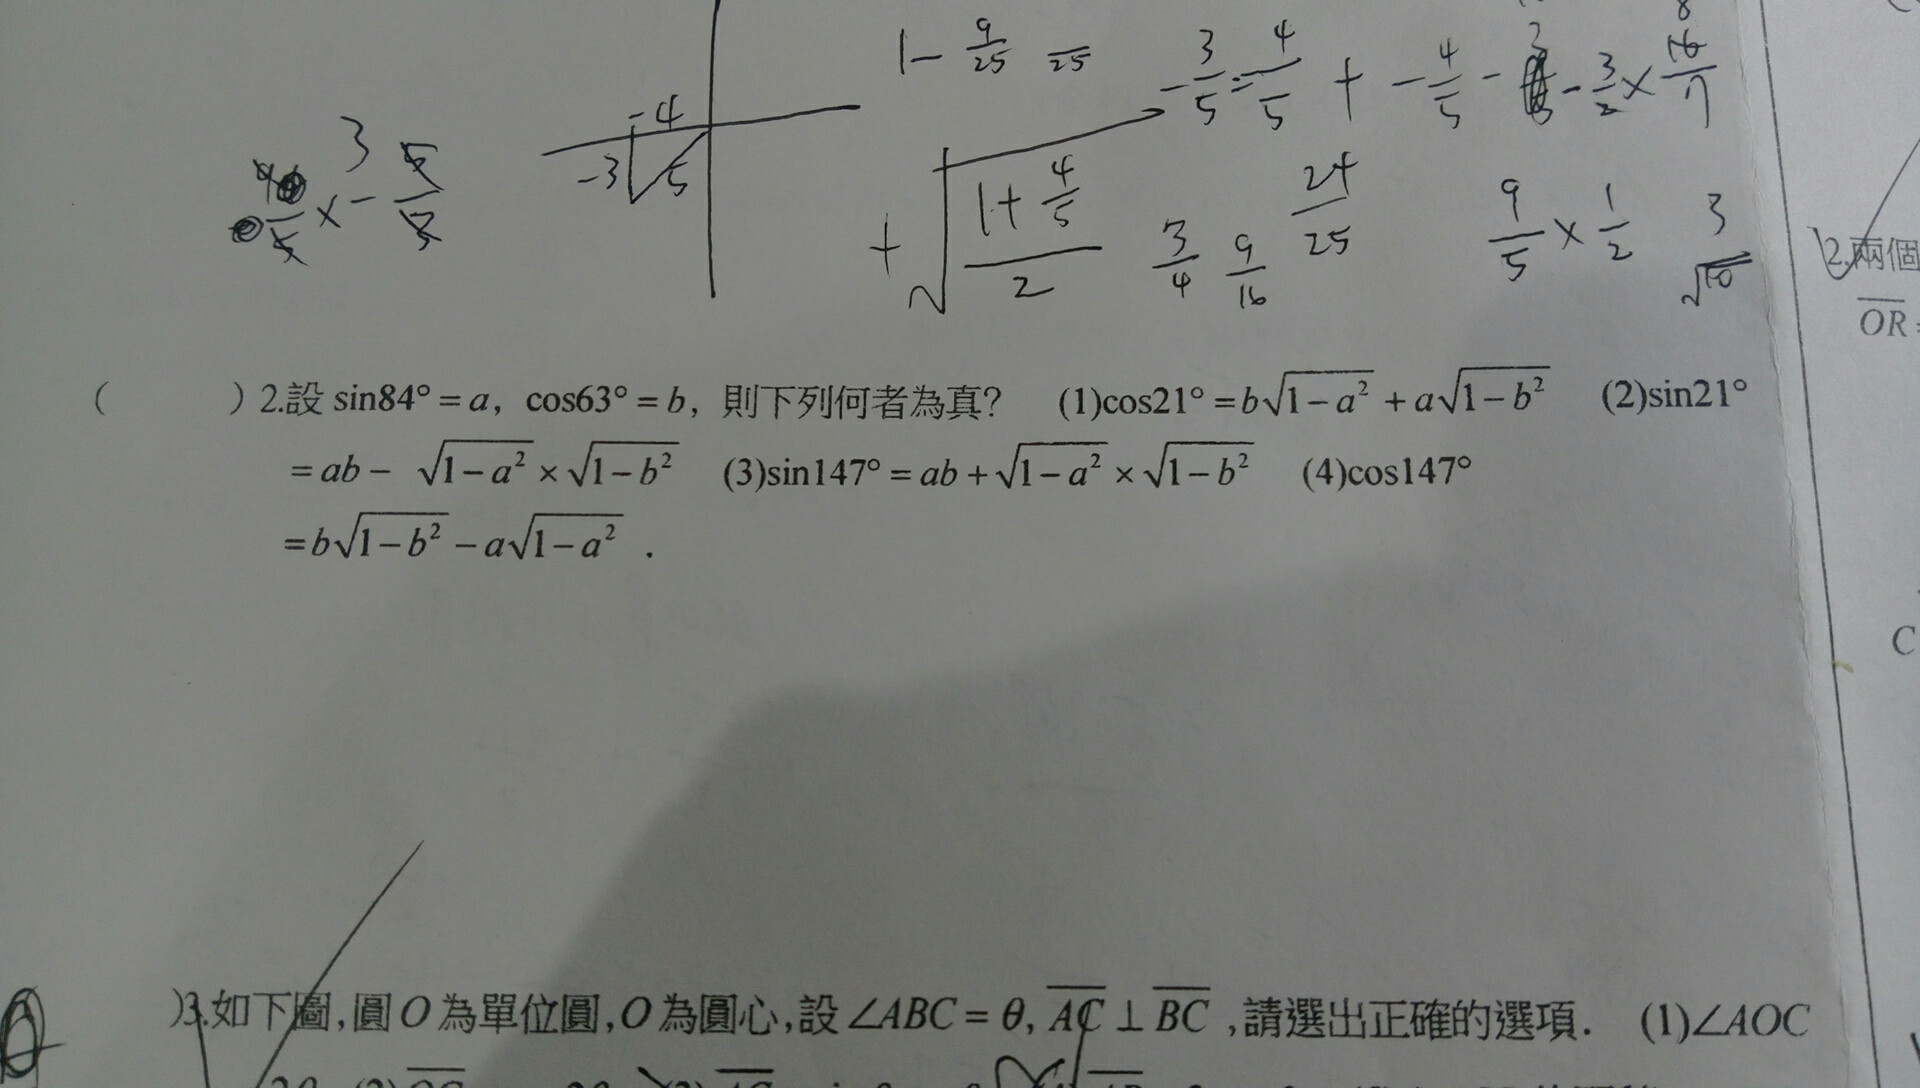 1 - 9/25 = /25
-3/5 = 4/5 + -4/5 - - 3/2 × 16/7
-4
-3 5
3
+ √((1+4/5)/2) 3/4 9/16 24/25 9/5 × 1/2 3/√10
2.兩個
OR =
( )2.設 sin84° = a, cos63° = b, 則下列何者為真? (1)cos21° = b√(1−a²) + a√(1−b²) (2)sin21°
= ab − √(1−a²) × √(1−b²) (3)sin147° = ab + √(1−a²) × √(1−b²) (4)cos147°
= b√(1−b²) − a√(1−a²) .
C
)3.如下圖,圓 O 為單位圓,O 為圓心,設 ∠ABC = θ, AC ⊥ BC ,請選出正確的選項. (1)∠AOC